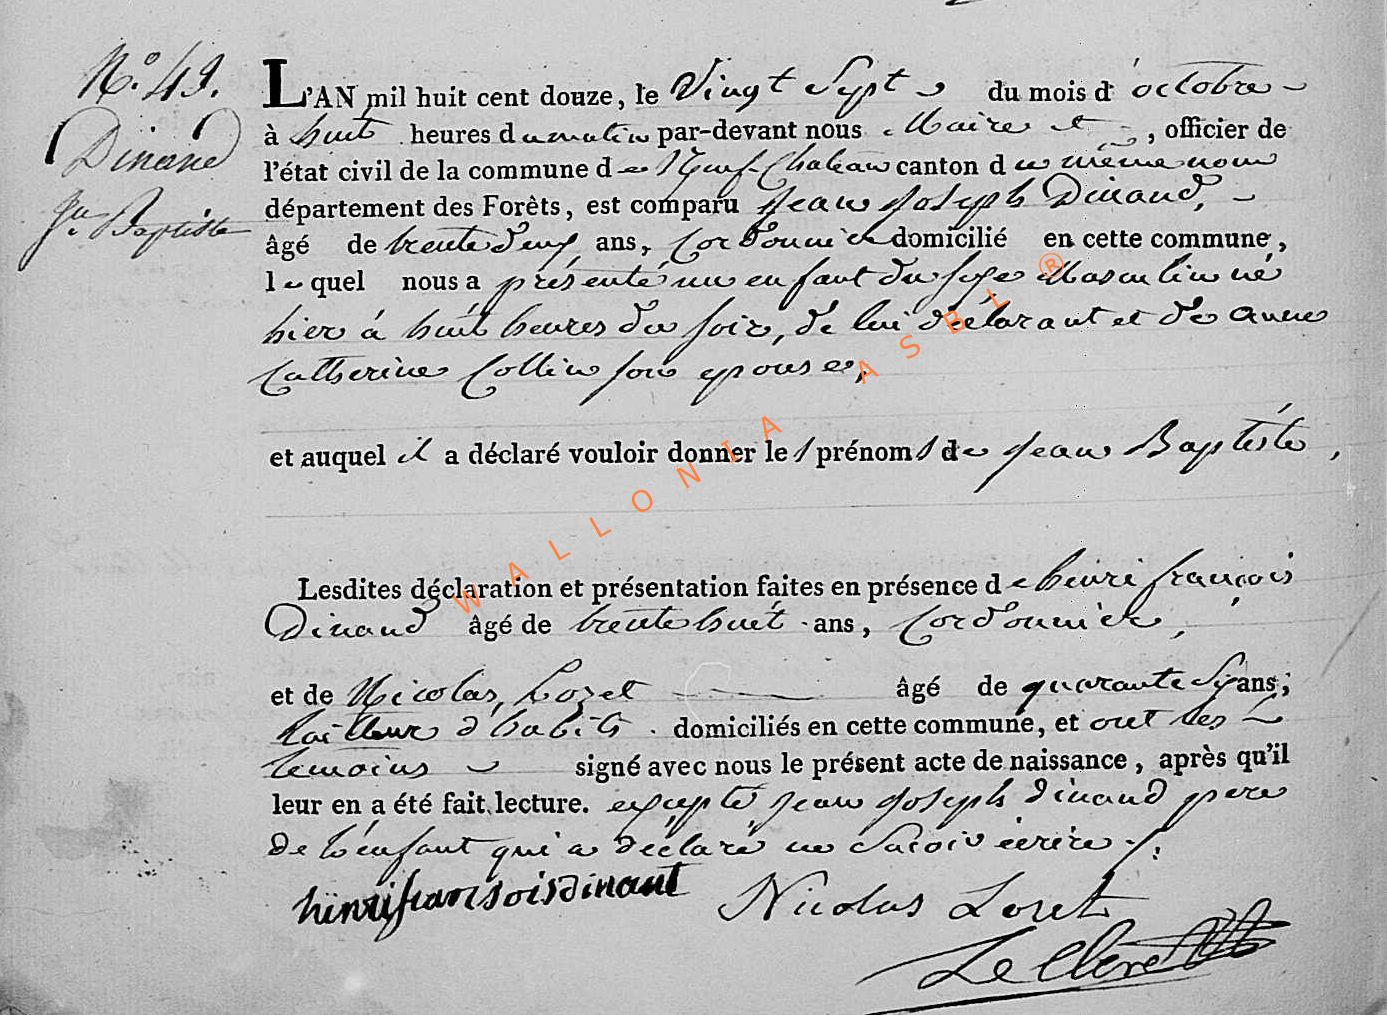 N.º 49.
Dinand
Jn. Baptiste
L'AN mil huit cent douze, le Vingt Sept du mois d'octobre
à huit heures du matin par-devant nous Maire et, officier de
l'état civil de la commune de Neuf-Chateau canton du même nom
département des Forêts, est comparu Jean Joseph Dinand,
âgé de trente deux ans, Cordonnier domicilié en cette commune,
lequel nous a présenté un enfant du sexe Masculin né
hier à huit heures du soir, de lui déclarant et de Anne
Catherine Collin son epouse,
et auquel il a déclaré vouloir donner les prénoms de Jean Baptiste,
Lesdites déclaration et présentation faites en présence de henri françois
Dinand âgé de trente huit ans, Cordonnier,
et de Nicolas Lozet âgé de quarante Six ans;
tailleur d'habits. domiciliés en cette commune, et ont les
temoins signé avec nous le présent acte de naissance, après qu'il
leur en a été fait lecture. excepté Jean Joseph dinand pere
de l'enfant qui a déclaré ne Savoir écrire ./.
hinrifransoisdinant Nicolas Loret
LeClere
WALLONIA ASBL ®